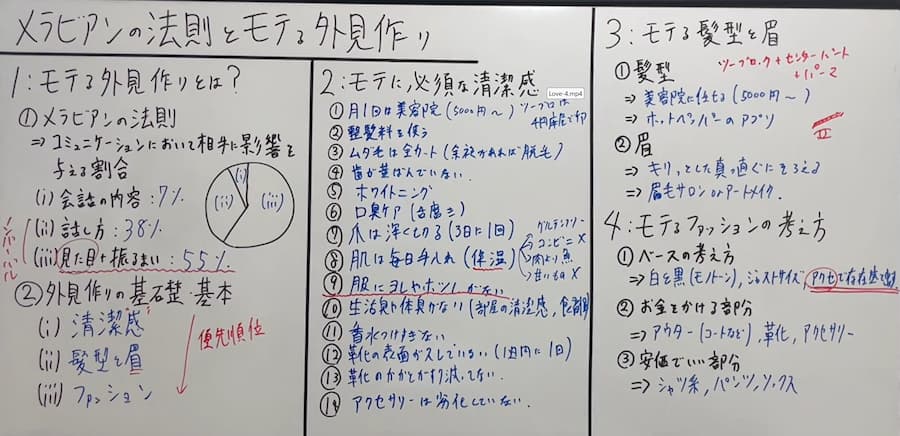 メラビアンの法則とモテる外見作り
1:モテる外見作りとは?
①メラビアンの法則
⇒コミュニケーションにおいて相手に影響を
与える割合
(i) 会話の内容:7%
(ii) 話し方:38%
(iii) 見た目+振るまい:55%
(i)
(ii)
(iii)
②外見作りの基礎・基本
(i) 清潔感
(ii) 髪型と眉
(iii) ファッション
優先順位
2:モテに必須な清潔感
Love-4.mp4
①月1回は美容院(5000円〜)
②整髪料を使う
③ムダ毛は全カット(余裕があれば脱毛)
④歯が黄ばんでいない。
⑤ホワイトニング
⑥口臭ケア(舌磨き)
⑦爪は深く切る(3日に1回)
⑧肌は毎日手入れ(保湿)
グルテンフリー
コンビニ×
肉より魚
甘いもの×
⑨服にヨレやホツレがない
⑩生活臭や体臭がない(部屋の清潔感,
⑪香水つけすぎない
⑫革靴の表面がスレていない(1週間に1回)
⑬革靴のかかとがすり減ってない。
⑭アクセサリーは劣化していない.
3:モテる髪型と眉
①髪型
ツーブロック+センターパート
+パーマ
⇒美容院に任せる(5000円〜)
⇒ホットペッパーのアプリ
②眉
⇒キリッとした真っ直ぐにそろえる
⇒眉毛サロン or アートメイク.
4:モテるファッションの考え方
①ベースの考え方
⇒白と黒(モノトーン),ジャストサイズ,アクセで存在感を
②お金をかける部分
⇒アウター(コートなど),革靴,アクセサリー
③安価でいい部分
⇒シャツ系,パンツ,ソックス